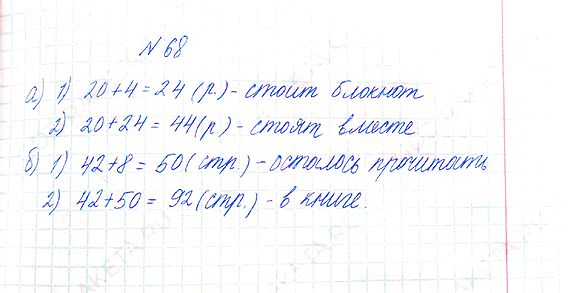 № 68
а) 1) 20+4=24 (р.) - стоит блокнот
2) 20+24=44(р) - стоят вместе
б) 1) 42+8=50 (стр.) - осталось прочитать
2) 42+50=92 (стр.) - в книге.